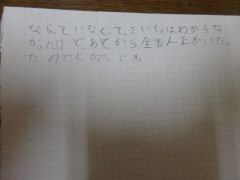 ならっていなくて、さいしょはわからな
かったけどあとから全もんとかいたっ
たのでよかったです。